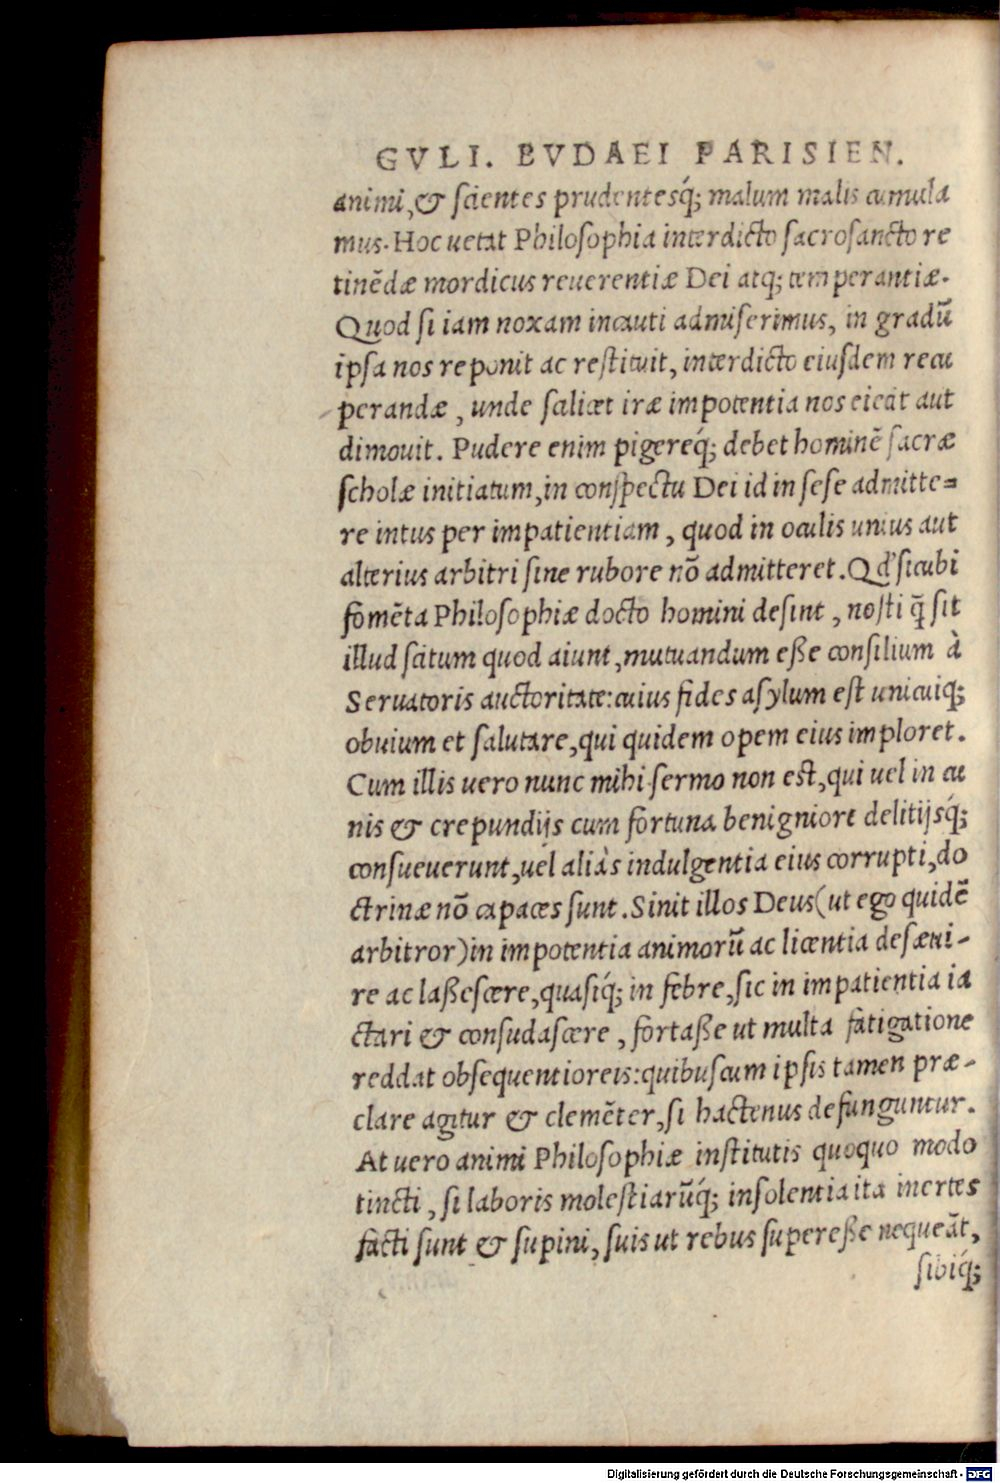 GVLI. BVDAEI PARISIEN.
animi, & scientes prudentesq́; malum malis cumula
mus. Hoc uetat Philosophia interdicto sacrosancto re
tinẽdæ mordicus reuerentiæ Dei atq; temperantiæ.
Quod si iam noxam incauti admiserimus, in gradũ
ipsa nos reponit ac restituit, interdicto eiusdem recu
perandæ, unde scilicet iræ impotentia nos eicãt aut
dimouit. Pudere enim pigereq́; debet hominẽ sacræ
scholæ initiatum, in conspectu Dei id in sese admitte=
re intus per impatientiam, quod in oculis unius aut
alterius arbitri sine rubore nõ admitteret. Qđ sicubi
fomẽta Philosophiæ docto homini desint, nosti q̃ sit
illud scitum quod aiunt, mutuandum eße consilium à
Seruatoris auctoritate: cuius fides asylum est unicuiq;
obuium et salutare, qui quidem opem eius imploret.
Cum illis uero nunc mihi sermo non est, qui uel in cu
nis & crepundijs cum fortuna benigniore delitijsq́;
consueuerunt, uel aliàs indulgentia eius corrupti, do
ctrinæ nõ capaces sunt. Sinit illos Deus (ut ego quidẽ
arbitror) in impotentia animorũ ac licentia desæui-
re ac laßescere, quasiq́; in febre, sic in impatientia ia
ctari & consudascere, fortaße ut multa fatigatione
reddat obsequentioreis: quibuscum ipsis tamen præ-
clare agitur & clemẽter, si hactenus defunguntur.
At uero animi Philosophiæ institutis quoquo modo
tincti, si laboris molestiarũq́; insolentia ita inertes
facti sunt & supini, suis ut rebus supereße nequeãt,
sibiq́;
Digitalisierung gefördert durch die Deutsche Forschungsgemeinschaft - DFG